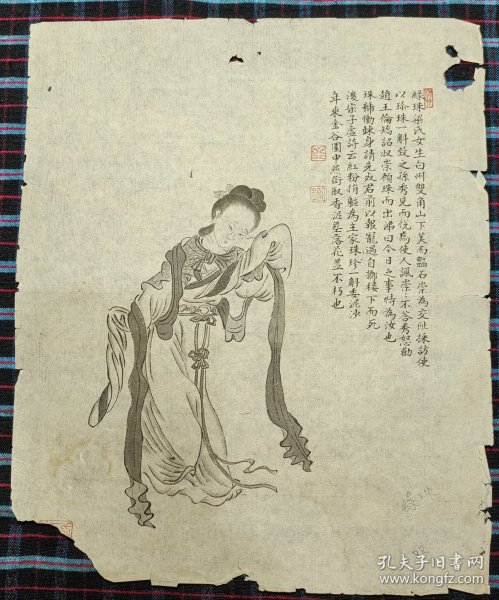 綠珠梁氏女生白州雙角山下美而豔石崇為交趾採訪使
以珍珠一斛致之孫秀見而悅為使人諷崇崇不答秀怒勸
趙王倫矯詔收崇顧珠而出涕曰今日之事特為汝也
珠稱慟竦身請先效君前以報寵遇自擲樓下而死
後宗子虛詩云紅粉捐軀為主家珠珍一斛委泥沙
年來金谷園中燕銜取香泥葬落花並不朽也
孔夫子旧书网
www.kongfz.com